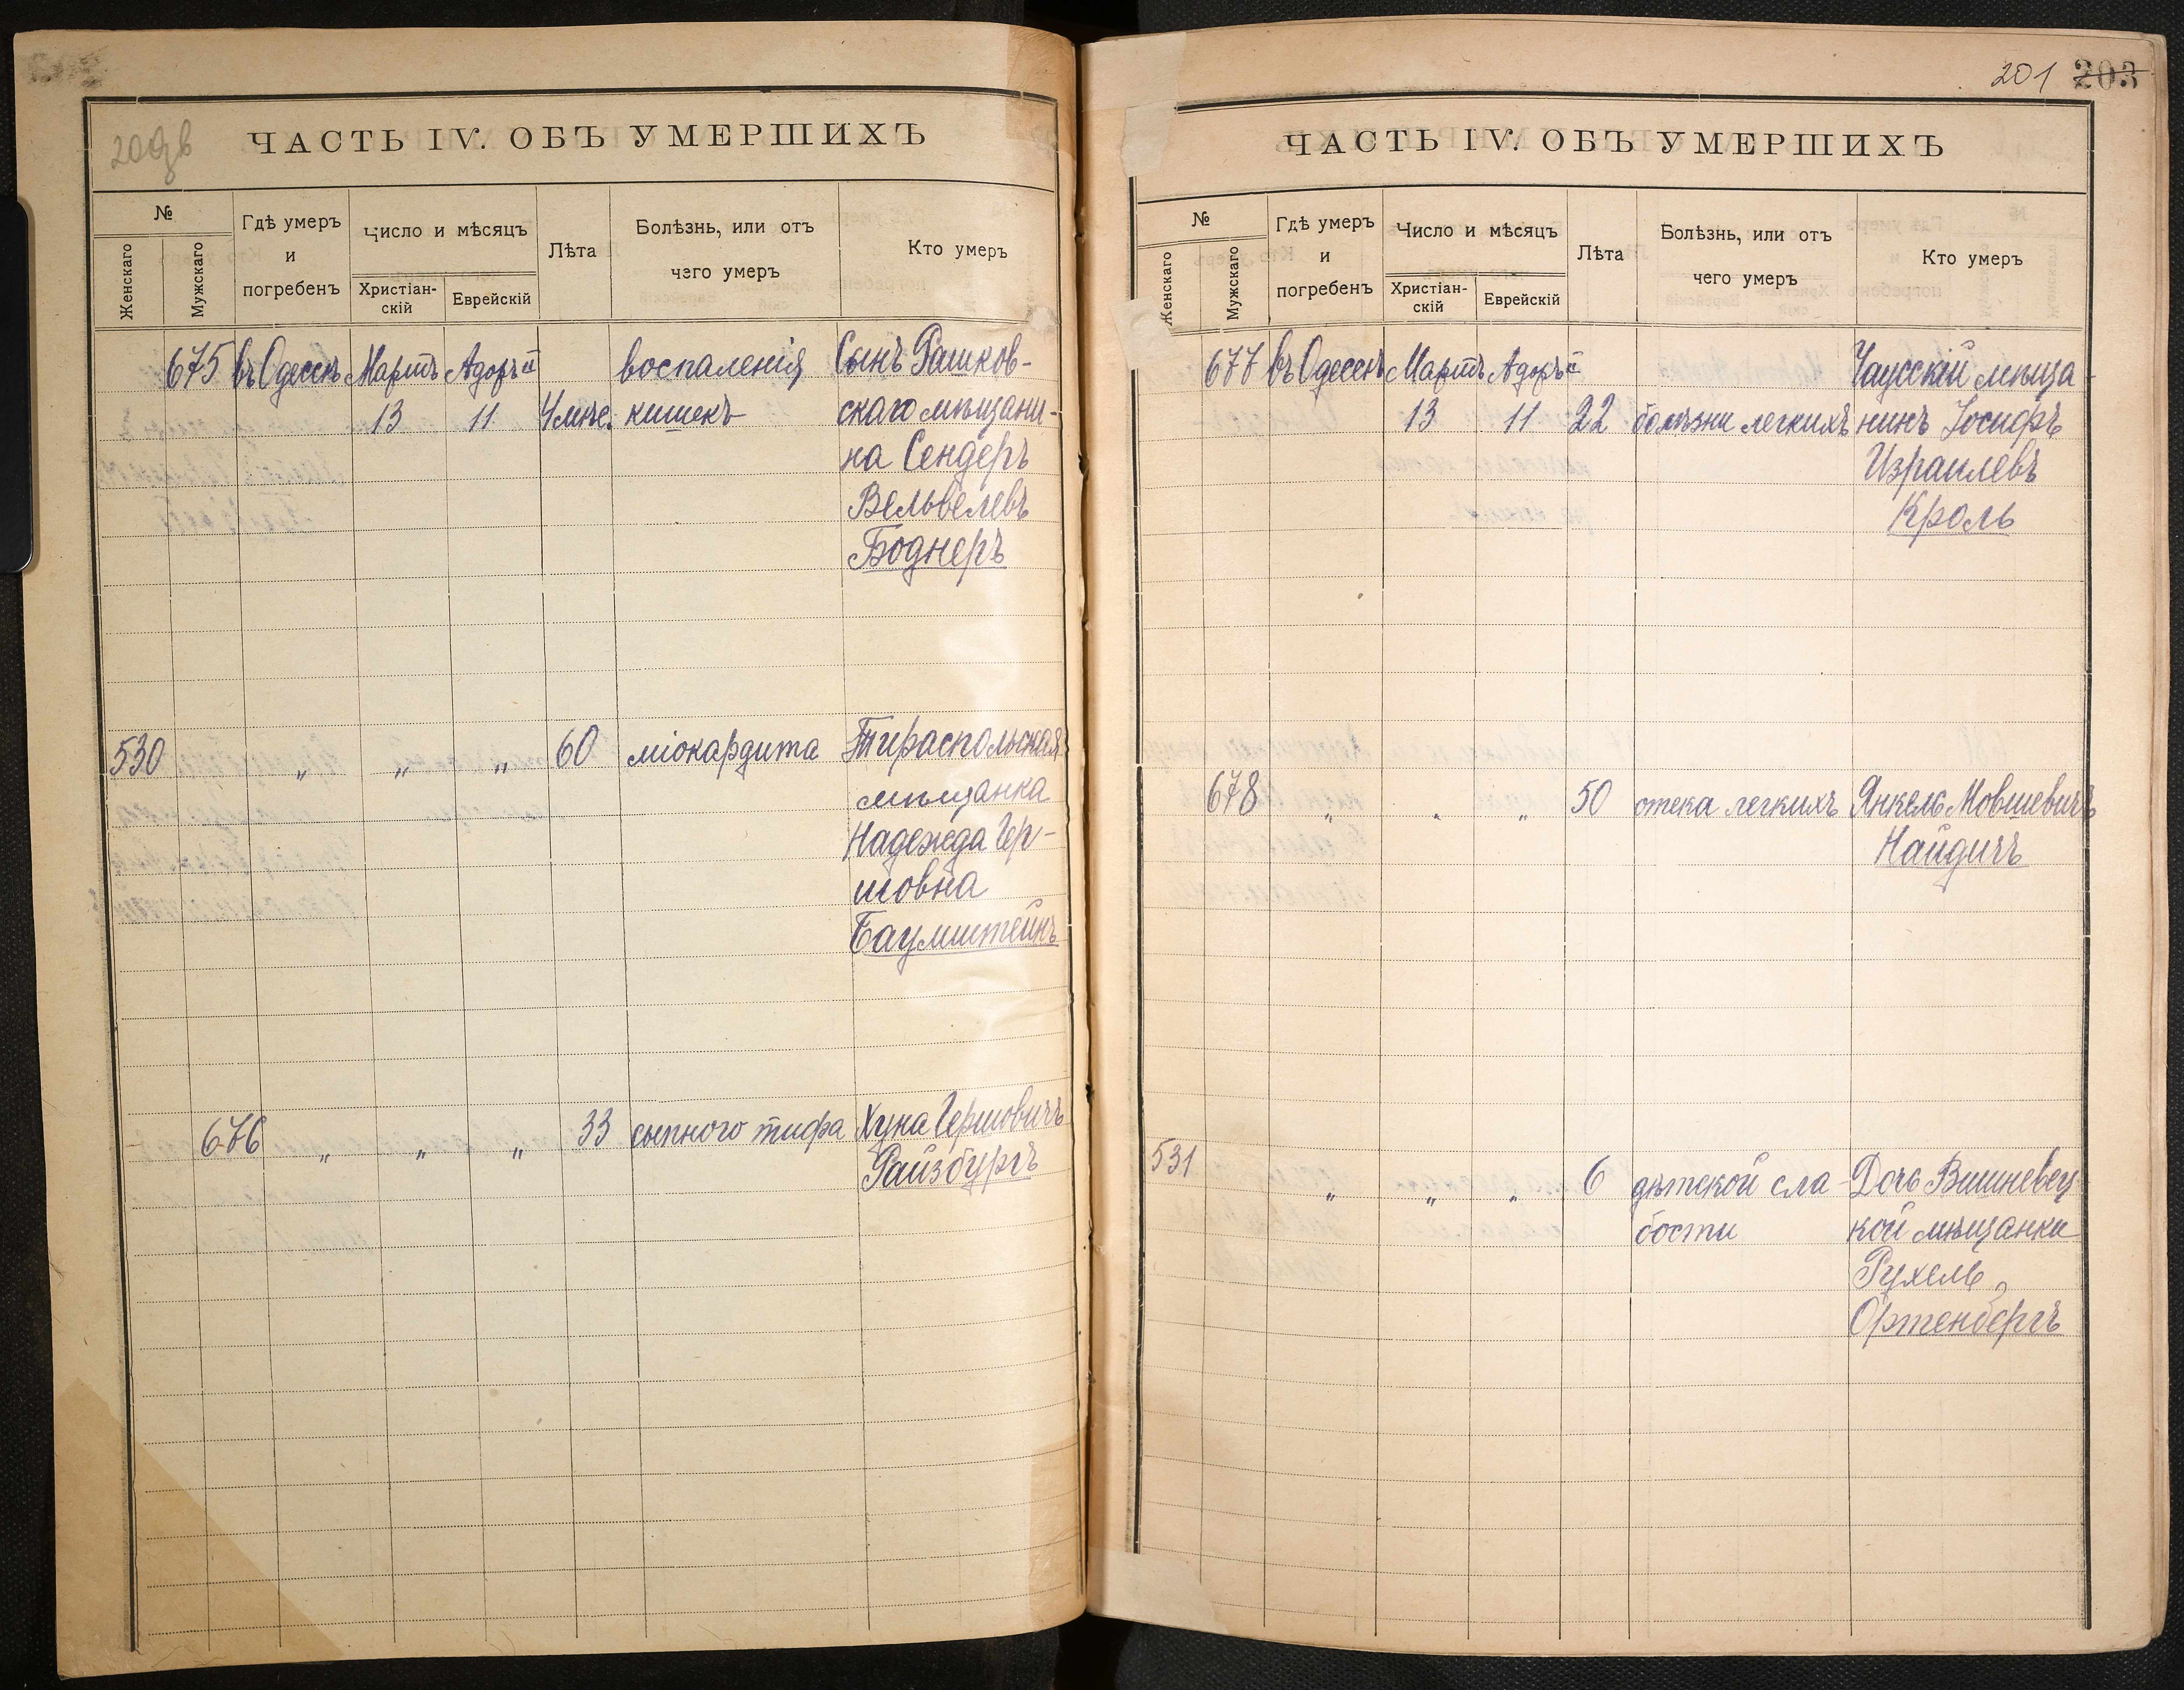 ЧАСТЬ IV. ОБЪ УМЕРШИХЪ
№
Женскаго
Мужскаго
Гдѣ умеръ
и
погребенъ
Число и мѣсяцъ
Христіан-
скій
Еврейскій
Лѣта
Болѣзнь, или отъ
чего умеръ
Кто умеръ
675 въ Одессѣ Мартъ Адоръ II воспаленія Сынъ Рашков-
13 11 4 мѣс. кишекъ скаго мѣщани-
на Сендеръ
Вельвелевъ
Боднеръ
530 " " " 60 міокардита Тираспольская
мѣщанка
Надежда Гер-
шовна
Баумштейнъ
676 " " " 33 сыпного тифа Хуна Гершовичъ
Райзбургъ
201 203
ЧАСТЬ IV. ОБЪ УМЕРШИХЪ
№
Женскаго
Мужскаго
Гдѣ умеръ
и
погребенъ
Число и мѣсяцъ
Христіан-
скій
Еврейскій
Лѣта
Болѣзнь, или отъ
чего умеръ
Кто умеръ
677 въ Одессѣ Мартъ Адоръ II Чаусскій мѣща-
13 11 22 болѣзни легкихъ нинъ Іосифъ
Израилевъ
Кроль
678 " " " 50 отека легкихъ Янкель Мовшевичъ
Найдичъ
531 " " " 6 дѣтской сла- Дочь Вишневец
бости кой мѣщанки
Рухель
Ортенбергъ